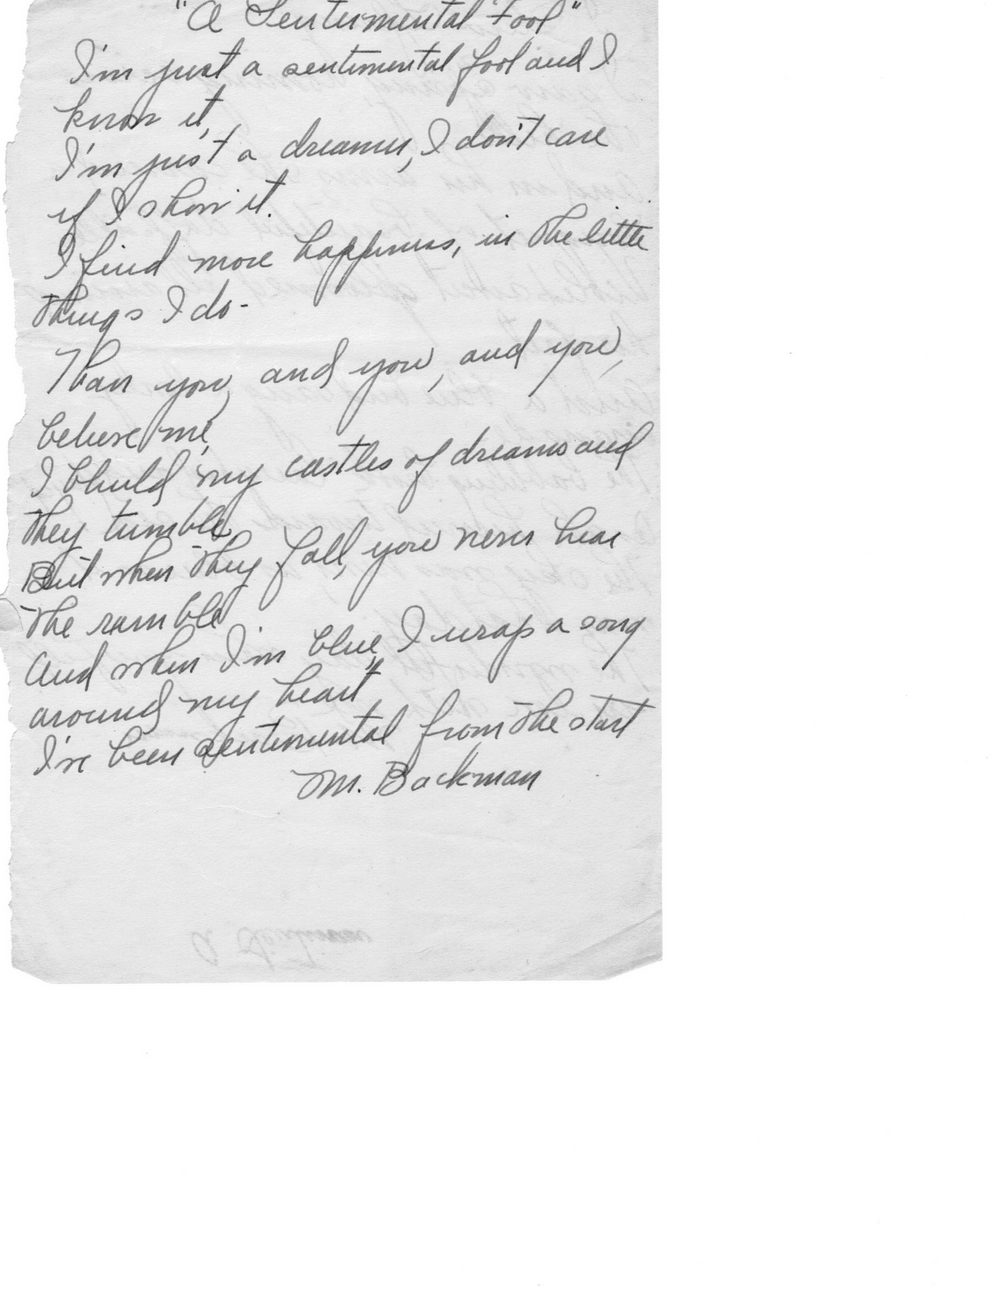 "A Sentimental Fool"
I'm just a sentimental fool and I
know it,
I'm just a dreamer, I don't care
if I show it.
I find more happiness, in the little
things I do-
Than you, and you, and you,
believe me,
I build my castles of dreams and
they tumble
But when they fall, you never hear
the rumble
And when I'm blue, I wrap a song
around my heart
I've been sentimental from the start
M. Backman